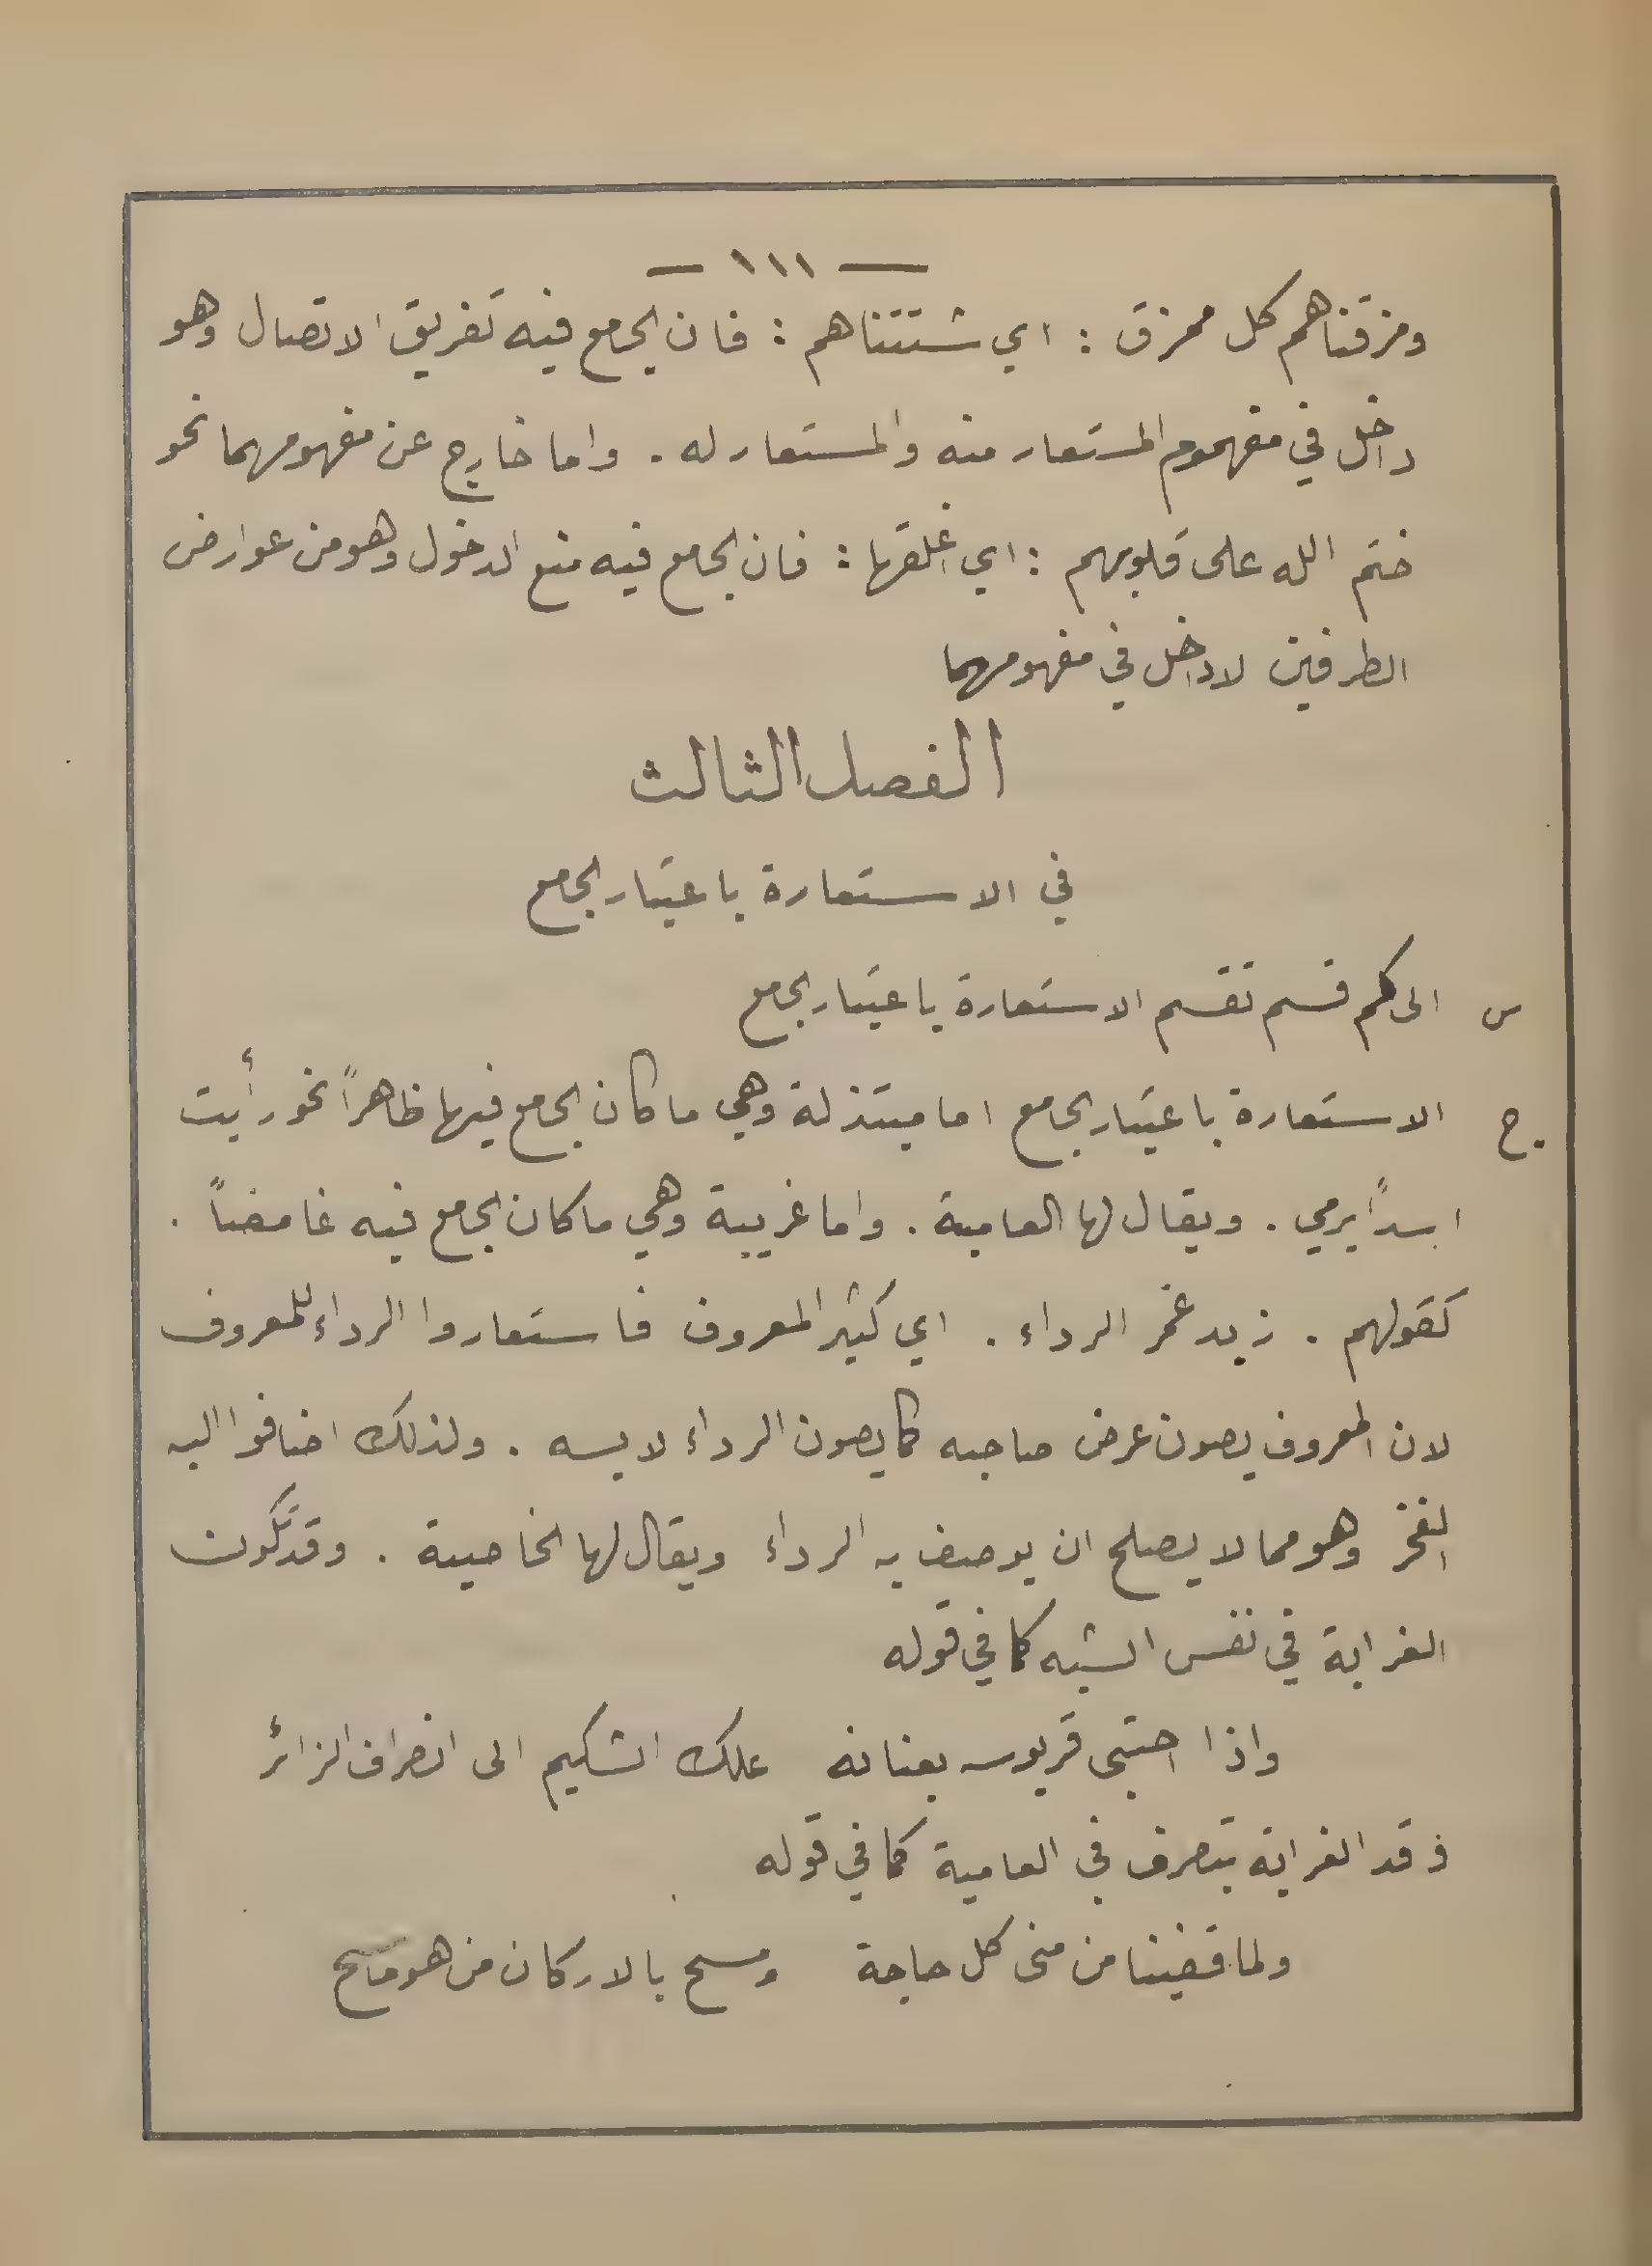 — ١١١ —
ومزقناهم كل ممزق : اي شتتناهم : فان الجامع فيه تفريق الاتصال وهو
داخل في مفهوم المستعار منه والمستعار له . واما خارج عن مفهومهما نحو
ختم الله على قلوبهم : اي اغلقها : فان الجامع فيه منع الدخول وهو من عوارض
الطرفين لا داخل في مفهومهما
الفصل الثالث
في الاستعارة باعتبار الجامع
س الى كم قسم تقسم الاستعارة باعتبار الجامع
ج الاستعارة باعتبار الجامع اما مبتذلة وهي ما كان الجامع فيها ظاهراً نحو رأيت
اسداً يرمي . ويقال لها العامية . واما غريبة وهي ما كان الجامع فيه غامضاً .
كقولهم . زيد غمر الرداء . اي كثير المعروف فاستعاروا الرداء للمعروف
لان المعروف يصون عرض صاحبه كما يصون الرداء لابسه . ولذلك اضافوا اليه
الغمر وهو مما لا يصلح ان يوصف به الرداء ويقال لها الخاصية . وقد تكون
الغرابة في نفس الشبه كما في قوله
واذا احتبى قربوسه بعنانه علك الشكيم الى انصراف الزائر
الغرابة بتصرف في العامية كما في قوله
ولما قضينا من منى كل حاجة ومسح بالاركان من هو ماسح